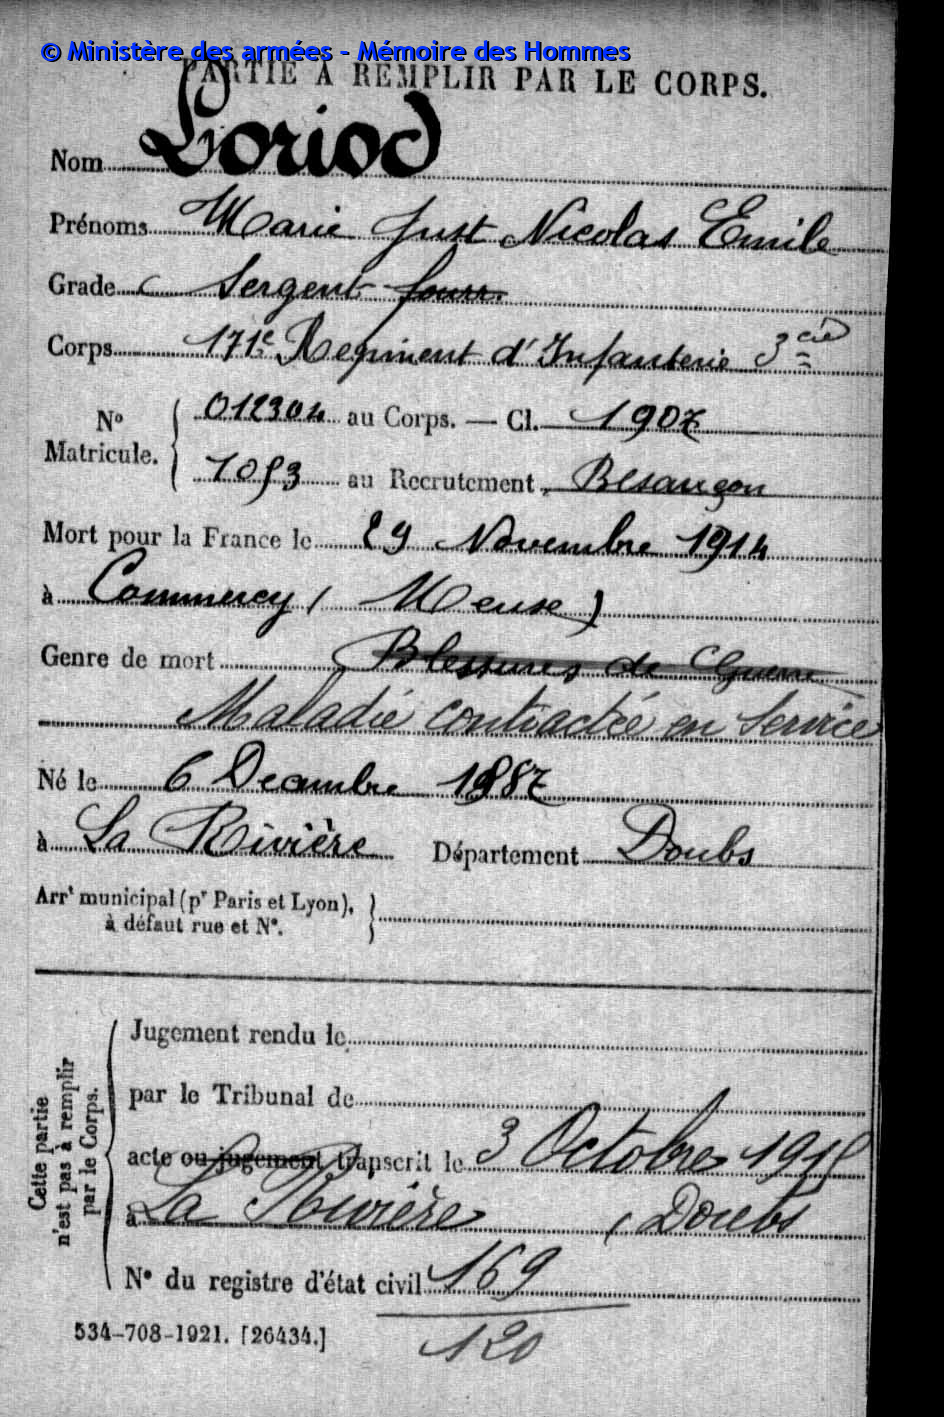 © Ministère des armées - Mémoire des Hommes
PARTIE À REMPLIR PAR LE CORPS.
Nom Loriod
Prénoms Marie Just Nicolas Emile
Grade Sergent fourr.
Corps 171e Regiment d'Infanterie 3 cie
No Matricule. { 012304 au Corps. — Cl. 1907
1053 au Recrutement Besançon
Mort pour la France le 29 Novembre 1914
à Commercy ( Meuse )
Genre de mort Blessures de Guerre
Maladie contractée en Service
Né le 6 Decembre 1887
à La Rivière Département Doubs
Arrt municipal (pr Paris et Lyon),
à défaut rue et No.
Cette partie n'est pas à remplir par le Corps.
Jugement rendu le
par le Tribunal de
acte ou jugement transcrit le 3 Octobre 1915
à La Rivière ( Doubs
No du registre d'état civil 169
120
534-708-1921. [26434.]